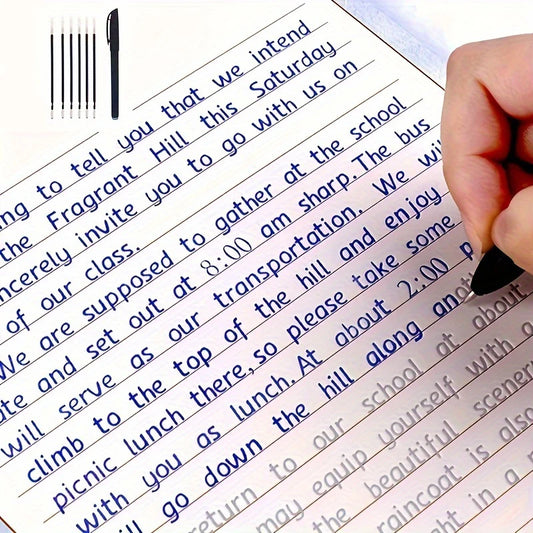 to tell you that we intend
the Fragrant Hill this Saturday
invite you to go with us on
of our class.
We are supposed to gather at the school
and set out at 8:00 am sharp. The bus
will serve as our transportation. We
climb to the top of the hill and enjoy
picnic lunch there, so please take some
with you as lunch. At about 2:00
go down the hill along an
return to our school at about
may equip yourself with a
the beautiful
raincoat is also
in a